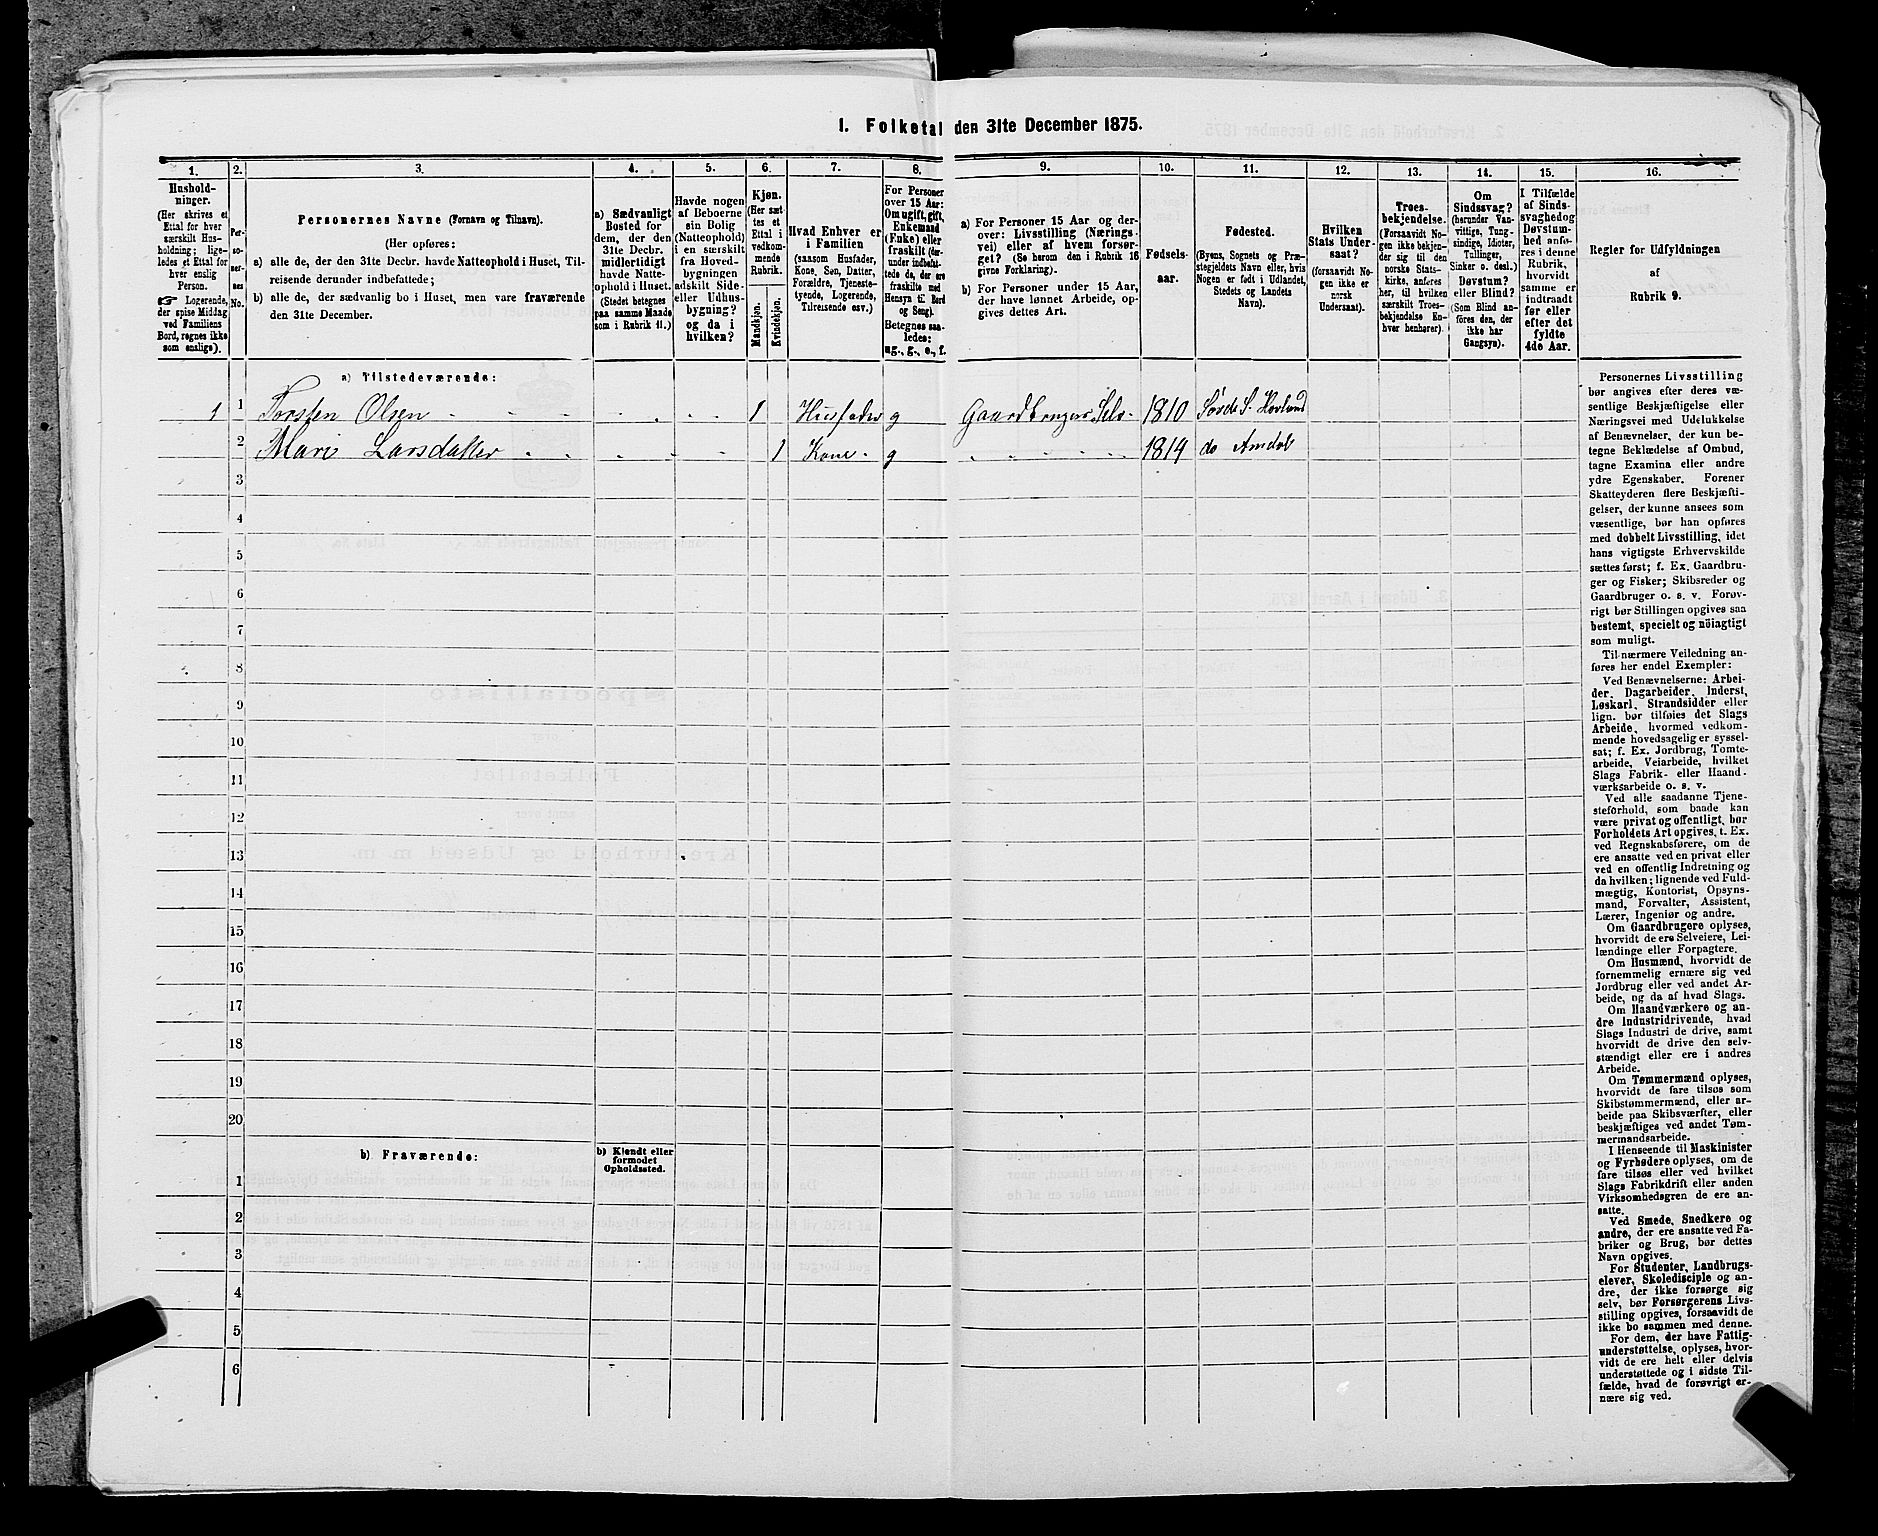 I. Folketal den 31te December 1875.
1. 2. 3. 4. 5. 6. 7. 8. 9. 10. 11. 12. 13. 14. 15. 16.
Hushold-
ninger.
(Her skrives et
Ettal for hver
særskilt Hus-
holdning; lige-
ledes et Ettal for
hver enslig
Person.
☞ Logerende,
der spise Middag
ved Familiens
Bord, regnes ikke
som enslige).
Per-
so-
ner-
nes
No.
Personernes Navne (Fornavn og Tilnavn).
(Her opføres:
a) alle de, der den 31te Decbr. havde Natteophold i Huset, Til-
reisende derunder indbefattede;
b) alle de, der sædvanlig bo i Huset, men vare fraværende
den 31te December.
a) Sædvanligt
Bosted for
dem, der den
31te Decbr.
midlertidigt
havde Natte-
ophold i Huset.
(Stedet betegnes
paa samme Maade
som i Rubrik 11.)
Havde nogen
af Beboerne
sin Bolig
(Natteophold)
i en særskilt
fra Hoved-
bygningen
adskilt Side-
eller Udhus-
bygning?
og da i
hvilken?
Kjøn.
(Her sæt-
tes et
Ettal i
vedkom-
mende
Rubrik.
Mandkjøn.
Kvindekjøn.
Hvad Enhver er
i Familien
(saasom Husfader,
Kone, Søn, Datter,
Forældre, Tjeneste-
tyende, Logerende,
Tilreisende osv.)
For Personer
over 15 Aar:
Om ugift, gift,
Enkemand
(Enke) eller
fraskilt (der-
under indbefat-
tede de, der ere
fraskilte med
Hensyn til Bord
og Seng).
Betegnes saa-
ledes:
ug., g., e., f.
a) For Personer 15 Aar og der-
over: Livsstilling (Nærings-
vei) eller af hvem forsør-
get? (Se herom den i Rubrik 16
givne Forklaring).
b) For Personer under 15 Aar,
der have lønnet Arbeide, op-
gives dettes Art.
Fødsels-
aar.
Fødested.
(Byens, Sognets og Præ-
stegjeldets Navn eller, hvis
Nogen er født i Udlandet,
Stedets og Landets
Navn).
Hvilken
Stats Under-
saat?
(forsaavidt No-
gen ikke er
norsk
Undersaat).
Troes-
bekjendelse.
(Forsaavidt No-
gen ikke bekjen-
der sig til den
norske Stats-
kirke, anføres
her, til hvilken
særskilt Troes-
bekjendelse En-
hver henhører).
Om
Sindssvag?
(herunder Van-
vittige, Tung-
sindige, Idioter,
Tullinger,
Sinker o. desl.)
Døvstum?
eller Blind?
(Som Blind an-
føres den, der
ikke har
Gangsyn).
I Tilfælde
af Sinds-
svaghed og
Døvstum-
hed anfø-
res i denne
Rubrik,
hvorvidt
samme er
indtraadt
før eller
efter det
fyldte
4de Aar.
Regler for Udfyldningen
af
Rubrik 9.
a) Tilstedeværende:
1 1 Torsten Olsen 1 Husfader g Gaardbruger Selv 1810 Hovland
2 Mari Larsdatter 1 Kone g 1814 do Amdal
3
4
5
6
7
8
9
10
11
12
13
14
15
16
17
18
19
20
b) Fraværende:
b) Kjendt eller
formodet
Opholdssted.
1
2
3
4
5
6
Personernes Livsstilling
bør angives efter deres væ-
sentlige Beskjæftigelse eller
Næringsvei med Udelukkelse
af Benævnelser, der kun be-
tegne Beklædelse af Ombud,
tagne Examina eller andre
ydre Egenskaber. Forener
Skatteyderen flere Beskjæfti-
gelser, der kunne ansees som
væsentlige, bør han opføres
med dobbelt Livsstilling, idet
hans vigtigste Erhvervskilde
sættes først; f. Ex. Gaardbru-
ger og Fisker; Skibsreder og
Gaardbruger o. s. v. Forøv-
rigt bør Stillingen opgives saa
bestemt, specielt og nöiagtigt
som muligt.
Til nærmere Veiledning an-
føres her endel Exempler:
Ved Benævnelserne: Arbei-
der, Dagarbeider, Inderst,
Løskarl, Strandsidder eller
lign. bør tilføies det Slags
Arbeide, hvormed vedkom-
mende hovedsagelig er syssel-
sat; f. Ex. Jordbrug, Tomte-
arbeide, Veiarbeide, hvilket
Slags Fabrik- eller Haand-
værksarbeide o. s. v.
Ved alle saadanne Tjene-
steforhold, som baade kan
være privat og offentligt, bør
Forholdets Art opgives, t. Ex.
ved Regnskabsførere, om de
ere ansatte ved en privat eller
ved en offentlig Indretning og
da hvilken; lignende ved Fuld-
mægtig, Kontorist, Opsyns-
mand, Forvalter, Assistent,
Lærer, Ingeniør og andre.
Om Gaardbrugere oplyses,
hvorvidt de ere Selveiere, Lei-
lændinge eller Forpagtere.
Om Husmænd, hvorvidt de
fornemmelig ernære sig ved
Jordbrug eller ved andet Ar-
beide, og da af hvad Slags.
Om Haandværkere og an-
dre Industridrivende, hvad
Slags Industri de drive, samt
hvorvidt de drive den selv-
stændigt eller ere i andres
Arbeide.
Om Tømmermænd oplyses,
hvorvidt de fare tilsøs som
Skibstømmermænd, eller ar-
beide paa Skibsværfter, eller
beskjæftiges ved andet Tøm-
mermandsarbeide.
I Henseende til Maskinister
og Fyrbødere oplyses, om de
fare tilsøs eller ved hvilket
Slags Fabrikdrift eller anden
Virksomhedsgren de ere an-
satte.
Ved Smede, Snedkere og
andre, der ere ansatte ved Fa-
briker og Brug, bør dettes
Navn opgives.
For Studenter, Landbrugs-
elever, Skoledisciple og an-
dre, der ikke forsørge sig
selv, bør Forsørgerens Livs-
stilling opgives, forsaavidt de
ikke bo sammen med denne.
For dem, der have Fattig-
understøttelse, oplyses, hvor-
vidt de ere helt eller delvis
understøttede og i sidste Til-
fælde, hvad de forøvrigt er-
nære sig ved.